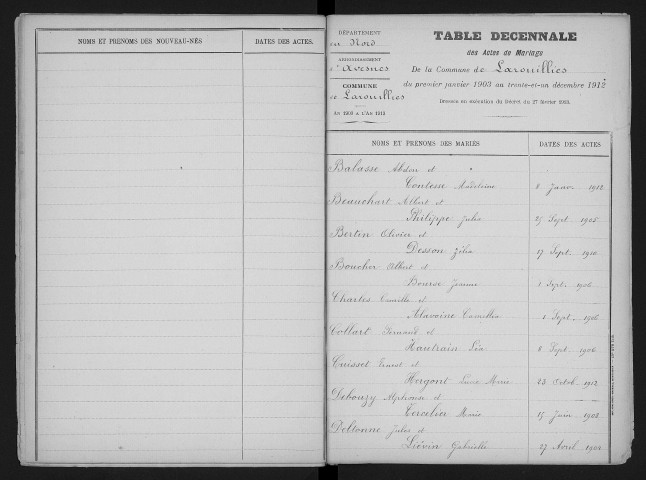 NOMS ET PRÉNOMS DES NOUVEAU-NÉS
DATES DES ACTES.
DÉPARTEMENT
du Nord
ARRONDISSEMENT
d'Avesnes
COMMUNE
de Larouillies
AN 1903 A L'AN 1912
TABLE DECENNALE
des Actes de Mariage
De la Commune de Larouillies
du premier janvier 1903 au trente-et-un décembre 1912
Dressée en exécution du Décret du 27 février 1903.
NOMS ET PRÉNOMS DES MARIÉS
DATES DES ACTES
Balasse Abdon et
Contesse Madeleine 8 Janvr 1912
Beauchart Albert et
Philippe Julia 25 Sept 1905
Bertin Olivier et
Desson Zélia 17 Sept. 1910
Boucher Albert et
Bourse Jeanne 1 Sept. 1906
Charles Camille et
Alavoine 1 Sept. 1906
Collart Fernand et
Hautrain Léa 8 Sept 1906
Cuisset Ernest et
Hergont Marie 23 Octob. 1912
Debouzy Alphonse et
Tercelin Marie 15 Juin 1908
Deltonne Jules et
Liévin Gabrielle 27 Avril 1908